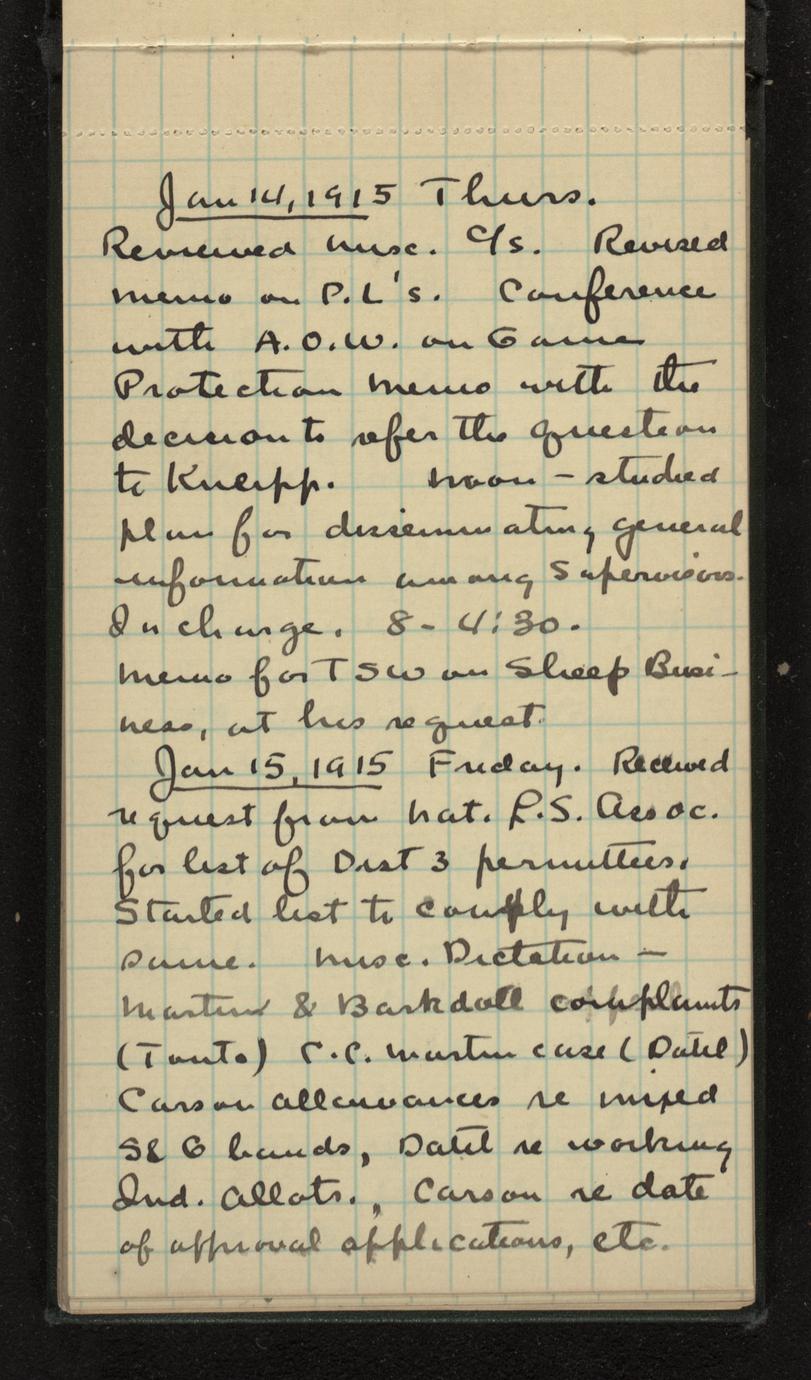 Jan 14, 1915 Thurs.
Reviewed misc. C/s. Revised
memo on P.L's. Conference
with A.O.W. on Game
Protection memo with the
decision to refer the question
to Kneipp. Noon – studied
plan for disseminating general
information among Supervisors.
In charge. 8 - 4:30.
Memo for TSW on Sheep Busi-
ness, at his request.
Jan 15, 1915 Friday. Received
request from Nat. L.S. Assoc.
for list of Dist 3 permittees.
Started list to comply with
same. Misc. Dictation –
Martin & Barkdoll complaints
(Tonto) C.C. Martin case (Datil)
Carson allowances re mixed
S & G bands, Datil re working
Ind. Allots., Carson re date
of approval applications, etc.